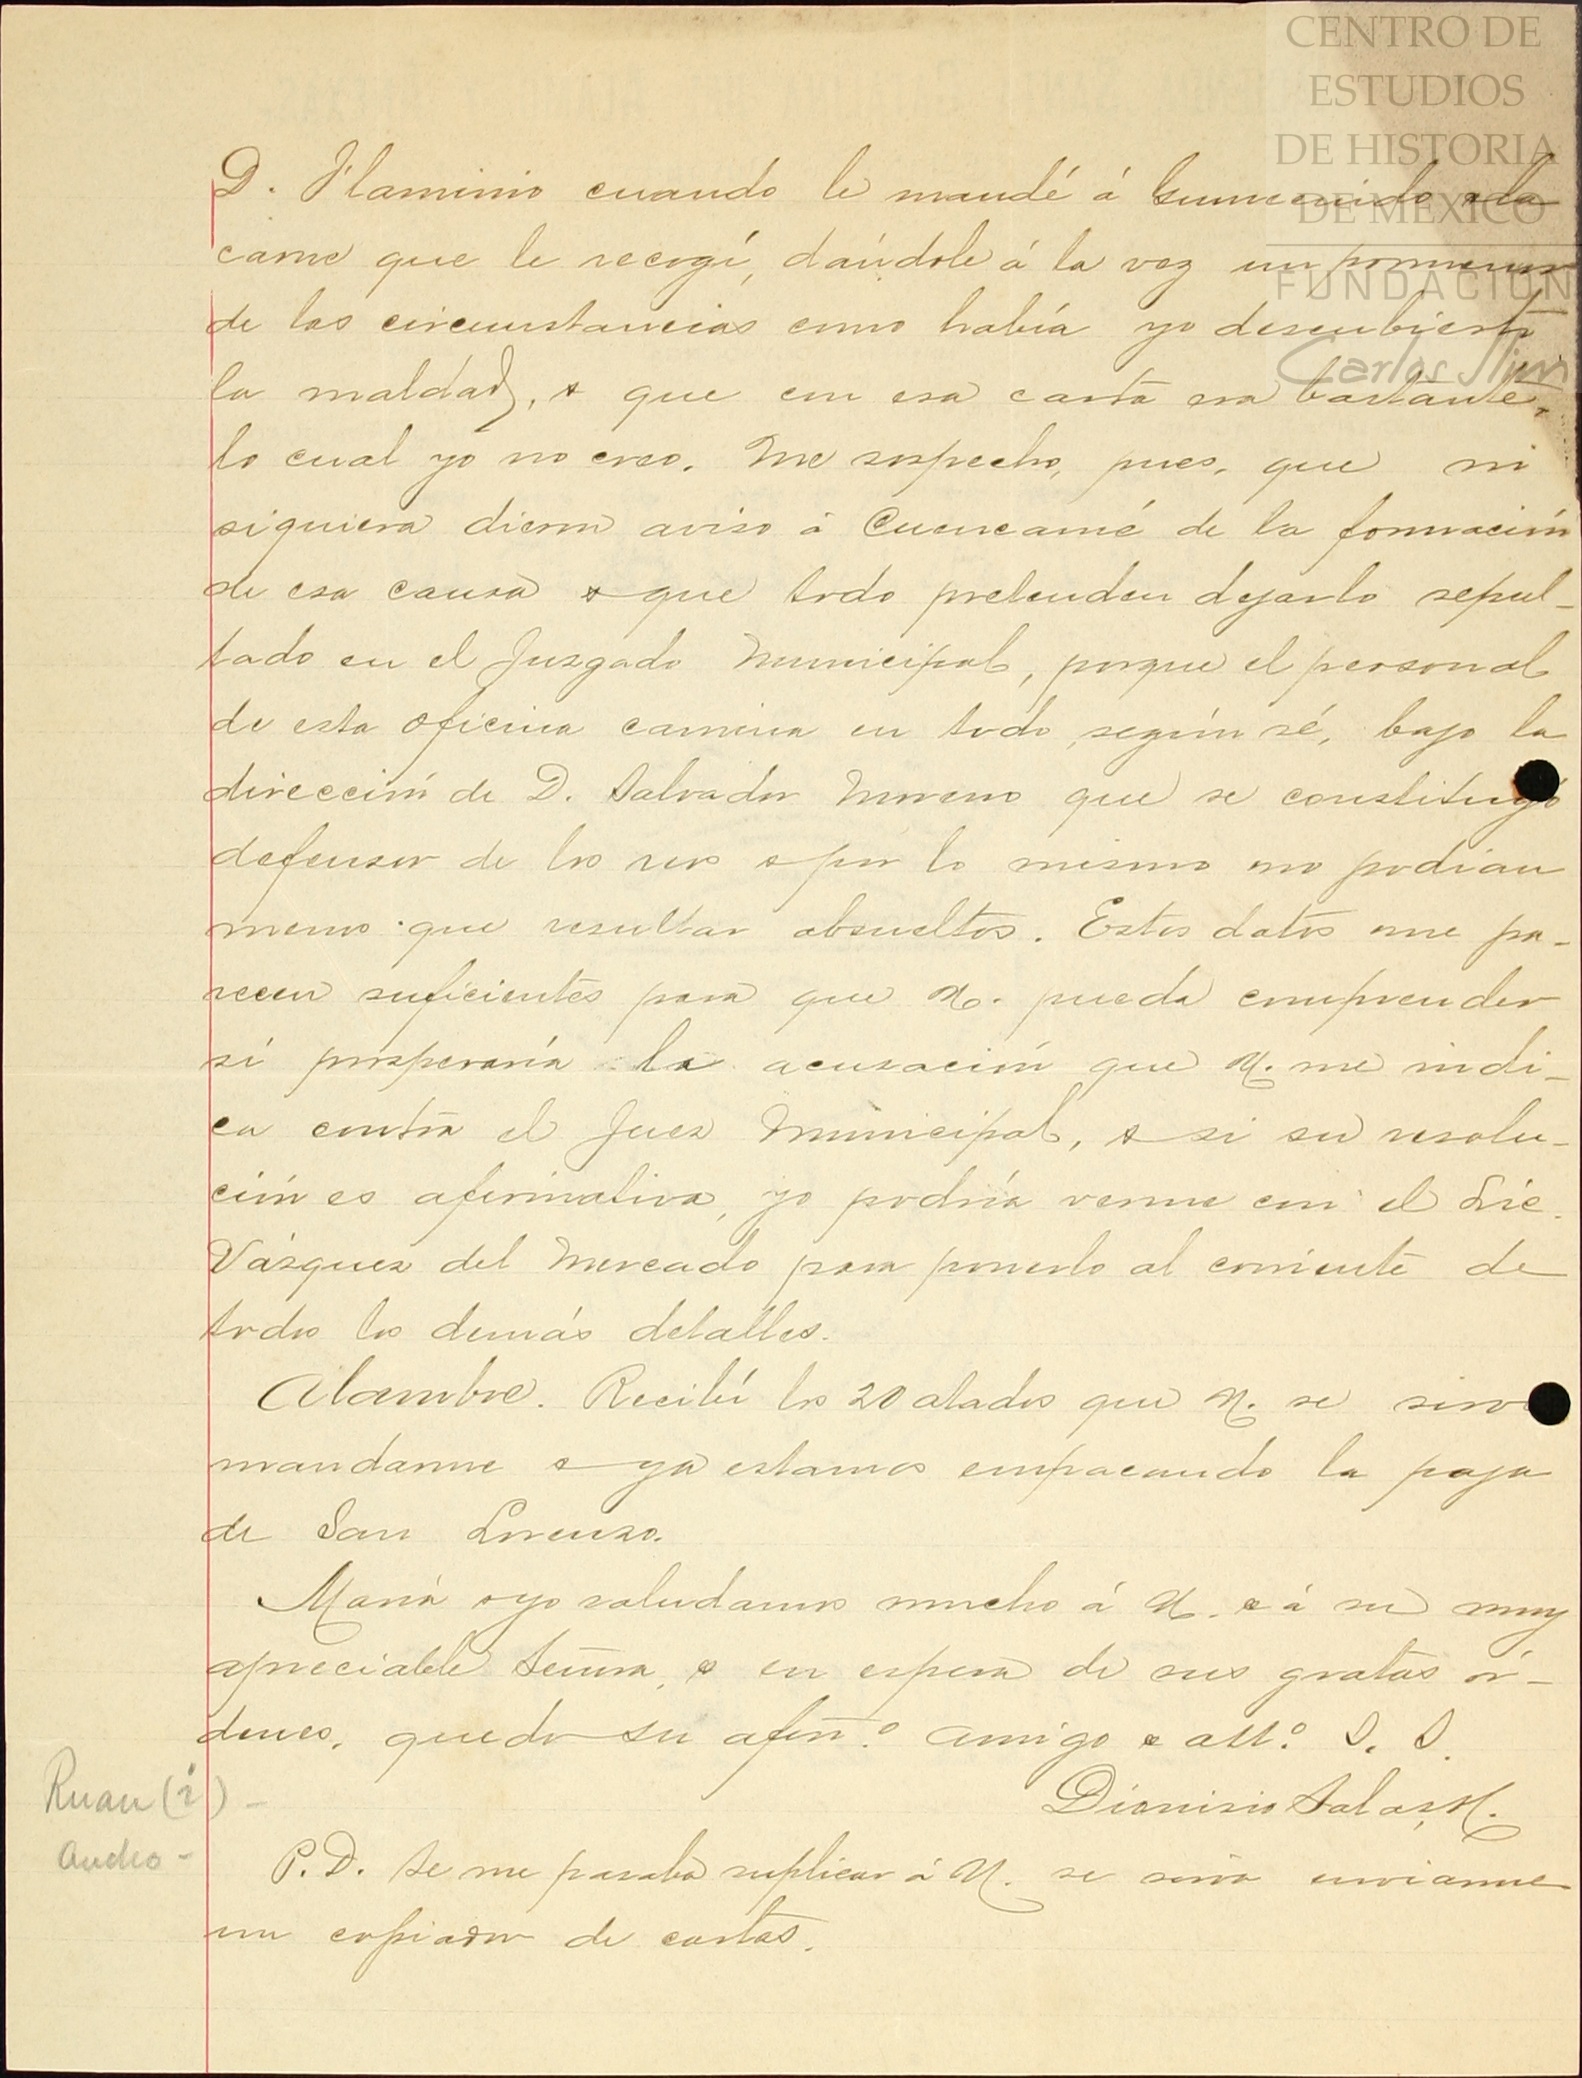 CENTRO DE
ESTUDIOS
DE HISTORIA
DE MEXICO
FUNDACION
Carlos Slim
D. Flaminio cuando le mandé á Gumercindo & la
carne que le recogí, dándole á la vez un pormenor
de las circunstancias como había yo descubierto
la maldad, & que con esa carta era bastante,
lo cual yo no creo. Me sospecho, pues, que ni
siquiera dieron aviso á Cuencamé de la formación
de esa causa & que todo pretenden dejarlo sepul-
tado en el Juzgado Municipal, porque el personal
de esta oficina camina en todo, según sé, bajo la
dirección de D. Salvador Moreno que se constituyó
defensor de los reos & por lo mismo no podían
menos que resultar absueltos. Estos datos me pa-
recen suficientes para que U. pueda comprender
si prosperaría la acusación que U. me indi-
ca contra el Juez Municipal, & si su resolu-
ción es afirmativa, yo podría verme con el Lic.
Vásquez del Mercado para ponerlo al corriente de
todos los demás detalles.
Alambre. Recibí los 20 atados que U. se sirvió
mandarme & ya estamos empacando la paja
de San Lorenzo.
María & yo saludamos mucho á U. & á su muy
apreciable Señora, & en espera de sus gratas ór-
denes, quedo su afmo. amigo & atto. S. S.
Dionisio Salas, H.
Ruan (i) -
Audeo -
P.D. Se me pasaba suplicar á U. se sirva enviarme
un copiador de cartas.